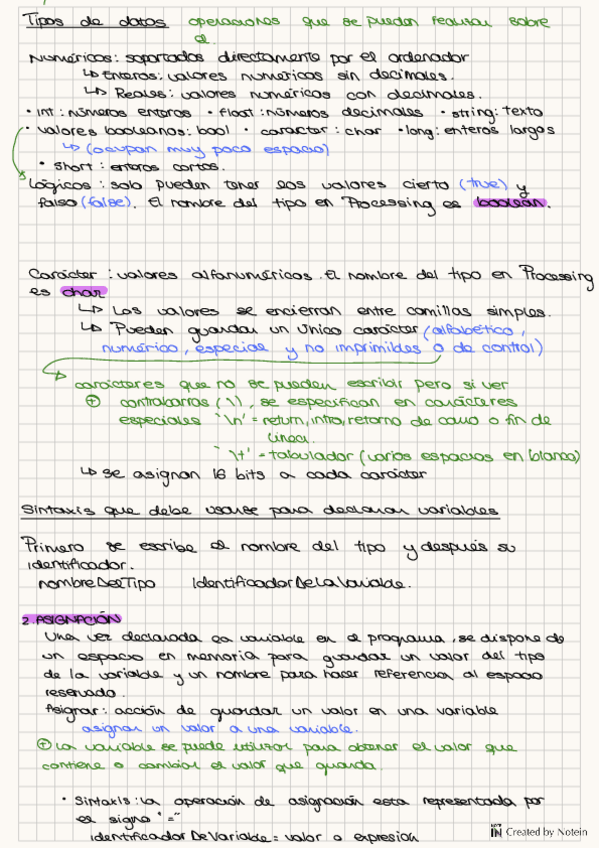 Tipos de datos operaciones que se pueden realizar sobre
él.
Numéricos: soportados directamente por el ordenador
↳ Enteros: valores numéricos sin decimales.
↳ Reales: valores numéricos con decimales.
• int: números enteros • float: números decimales • string: texto
• valores booleanos: bool • carácter: char • long: enteros largos
↳ (ocupan muy poco espacio)
• short: enteros cortos.
Lógicos: solo pueden tener los valores cierto (true) y
falso (false). El nombre del tipo en Processing es boolean.
Carácter: valores alfanuméricos. El nombre del tipo en Processing
es char
↳ Los valores se encierran entre comillas simples.
↳ Pueden guardar un único carácter (alfabético,
numérico, especial y no imprimibles o de control)
carácteres que no se pueden escribir pero si ver
+ contrabarras (\), se especifican en carácteres
especiales '\n' = return, intro, retorno de carro o fin de
línea.
'\t' = tabulador (varios espacios en blanco)
↳ se asignan 16 bits a cada carácter
Sintaxis que debe usarse para declarar variables
Primero se escribe el nombre del tipo y después su
identificador.
nombreDelTipo IdentificadorDeLaVariable.
2. ASIGNACIÓN
Una vez declarada la variable en el programa, se dispone de
un espacio en memoria para guardar un valor del tipo
de la variable y un nombre para hacer referencia al espacio
reservado.
Asignar: acción de guardar un valor en una variable
asignar un valor a una variable.
+ La variable se puede utilizar para obtener el valor que
contiene o cambiar el valor que guarda.
• Sintaxis: la operación de asignación esta representada por
el signo "="
identificadorDeVariable = valor o expresión
Created by Notein